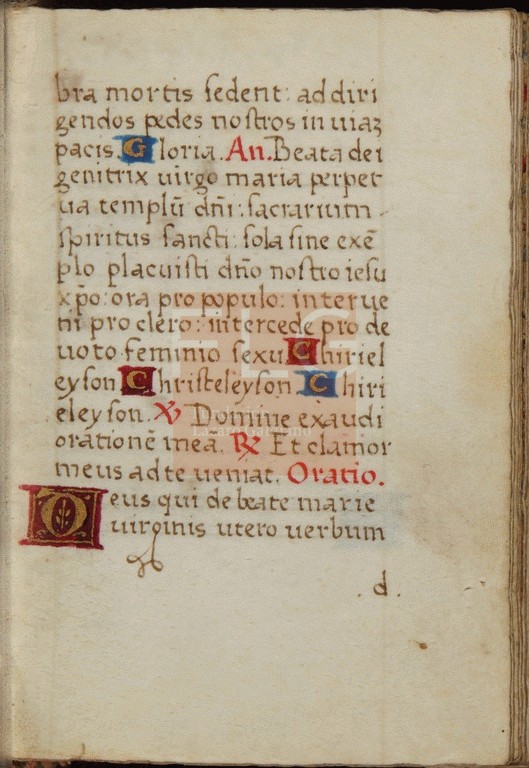 bra mortis sedent: ad diri
gendos pedes nostros in uiaz
pacis. Gloria. An. Beata dei
genitrix uirgo maria perpet
ua templū dn̄i: sacrarium
spiritus sancti: sola sine exē
plo placuisti dn̄o nostro iesu
xp̄o: ora pro populo: interue
ni pro clero: intercede pro de
uoto femineo sexu. Chiriel
eyson Christeleyson Chiri
eleyson. ℣ Domine exaudi
orationē mea. ℟ Et clamor
meus ad te ueniat. Oratio.
Deus qui de beate marie
uirginis utero uerbum
.d.